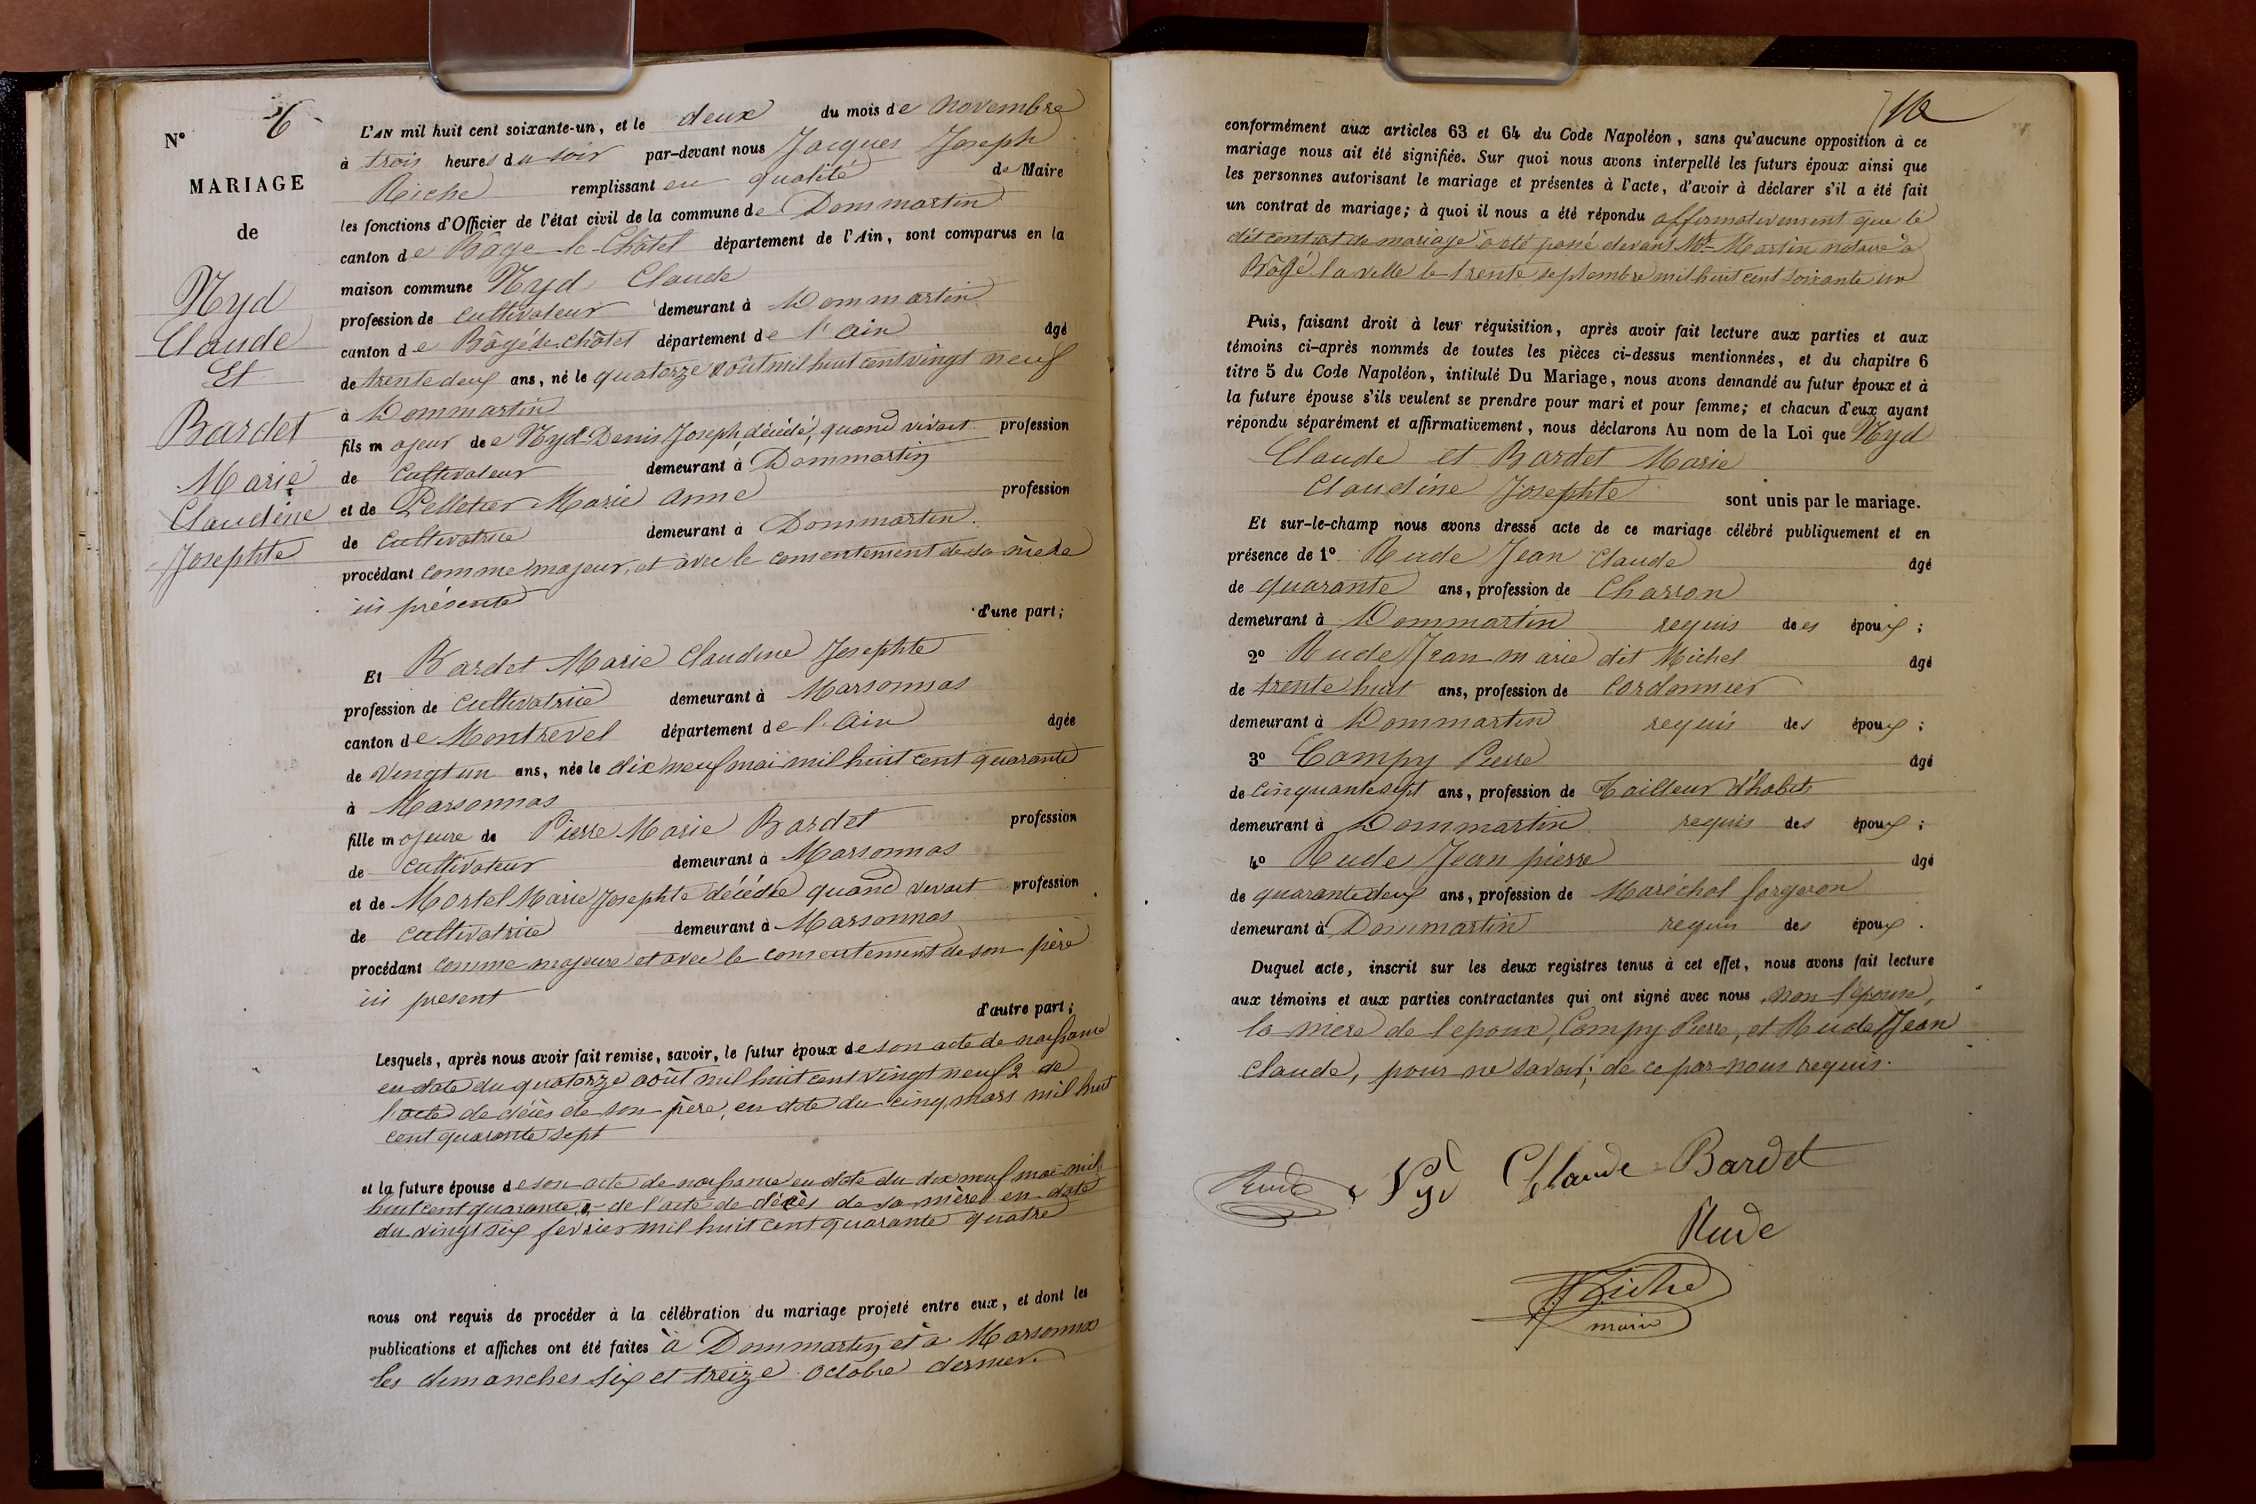 N° 6
MARIAGE
de
Nyd
Claude
Et
Bardet
Marie
Claudine
Josephte
L'AN mil huit cent soixante-un, et le deux du mois de novembre
à trois heures du soir par-devant nous Jacques Joseph
Riche remplissant en qualité de Maire
les fonctions d'Officier de l'état civil de la commune de Dommartin
canton de Bâgé-le-Châtel département de l'Ain, sont comparus en la
maison commune Nyd Claude
profession de cultivateur demeurant à Dommartin
canton de Bâgé-le-châtel département de l'ain âgé
de trente deux ans, né le quatorze août mil huit cent vingt neuf
à Dommartin
fils majeur de Nyd Denis Joseph, décédé, quand vivait profession
de Cultivateur demeurant à Dommartin
et de Pelletier Marie anne profession
de Cultivatrice demeurant à Dommartin.
procédant comme majeur, et avec le consentement de sa mère
ici présente d'une part;
Et Bardet Marie Claudine Josephte
profession de Cultivatrice demeurant à Marsonnas
canton de Montrevel département de l'Ain âgée
de vingt un ans, née le dix neuf mai mil huit cent quarante
à Marsonnas
fille majeure de Pierre Marie Bardet profession
de cultivateur demeurant à Marsonnas
et de Mortel Marie Josephte décédée quand vivait profession
de cultivatrice demeurant à Marsonnas
procédant comme majeure et avec le consentement de son père
ici present d'autre part;
Lesquels, après nous avoir fait remise, savoir, le futur époux de son acte de naissance
en date du quatorze août mil huit cent vingt neuf 2 de
l'acte de décès de son père, en date du cinq mars mil huit
cent quarante sept
et la future épouse de son acte de naissance en date du dix neuf mai mil
huit cent quarante, 2 de l'acte de décès de sa mère en date
du vingt six fevrier mil huit cent quarante quatre
nous ont requis de procéder à la célébration du mariage projeté entre eux, et dont les
publications et affiches ont été faites à Dommartin, et à Marsonnas
les dimanches six et treize octobre dernier.
conformément aux articles 63 et 64 du Code Napoléon, sans qu'aucune opposition à ce
mariage nous ait été signifiée. Sur quoi nous avons interpellé les futurs époux ainsi que
les personnes autorisant le mariage et présentes à l'acte, d'avoir à déclarer s'il a été fait
un contrat de mariage; à quoi il nous a été répondu affirmativement que le
dit contrat de mariage a été passé devant Me Martin notaire à
Bâgé la ville le trente septembre mil huit cent soixante un
Puis, faisant droit à leur réquisition, après avoir fait lecture aux parties et aux
témoins ci-après nommés de toutes les pièces ci-dessus mentionnées, et du chapitre 6
titre 5 du Code Napoléon, intitulé Du Mariage, nous avons demandé au futur époux et à
la future épouse s'ils veulent se prendre pour mari et pour femme; et chacun d'eux ayant
répondu séparément et affirmativement, nous déclarons Au nom de la Loi que Nyd
Claude et Bardet Marie
Claudine Josephte sont unis par le mariage.
Et sur-le-champ nous avons dressé acte de ce mariage célébré publiquement et en
présence de 1° Rude Jean Claude âgé
de quarante ans, profession de Charron
demeurant à Dommartin requis des époux;
2° Rude Jean marie dit Michel âgé
de trente huit ans, profession de Cordonnier
demeurant à Dommartin requis des époux;
3° Compy Pierre âgé
de cinquante sept ans, profession de Tailleur d'habits
demeurant à Dommartin requis des époux;
4° Rude Jean pierre âgé
de quarante deux ans, profession de Maréchal forgeron
demeurant à Dommartin requis des époux.
Duquel acte, inscrit sur les deux registres tenus à cet effet, nous avons fait lecture
aux témoins et aux parties contractantes qui ont signé avec nous, non l'épouse,
la mere de l'epoux, Compy Pierre, et Rude Jean
Claude, pour ne savoir; de ce par nous requis.
Rude Nyd Claude Bardet
Rude
Riche
maire